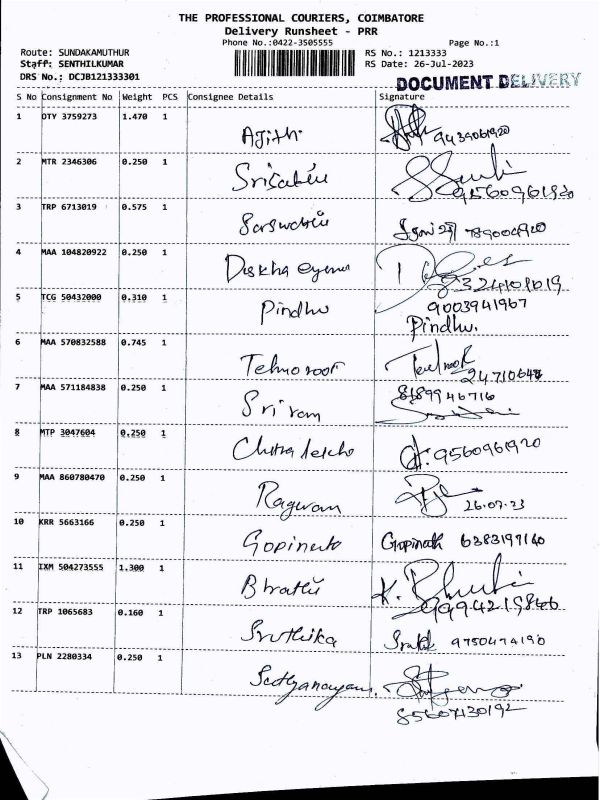 THE PROFESSIONAL COURIERS, COIMBATORE
Delivery Runsheet - PRR
Phone No.:0422-3505555 Page No.:1
Route: SUNDAKAMUTHUR RS No.: 1213333
Staff: SENTHILKUMAR RS Date: 26-Jul-2023
DRS No.: DCJB121333301
DOCUMENT DELIVERY
S No Consignment No Weight PCS Consignee Details Signature
1 OTY 3759273 1.470 1
Ajith 9439061920
2 MTR 2346306 0.250 1
9560961920
3 TRP 6713019 0.575 1
7890004920
4 MAA 104820922 0.250 1
5 TCG 50432000 0.310 1
Pindhu 9003941967
Pindhu.
6 MAA 570832588 0.745 1
7 MAA 571184838 0.250 1
Sriram 8189946716
8 MTP 3047604 0.250 1
9560961920
9 MAA 860780470 0.250 1
Raguram 26.07.23
10 KRR 5663166 0.250 1
Gopinath 6383197140
11 IXM 504273555 1.300 1
12 TRP 1065683 0.160 1
Sruthika 9750474190
13 PLN 2280334 0.250 1
85607130192